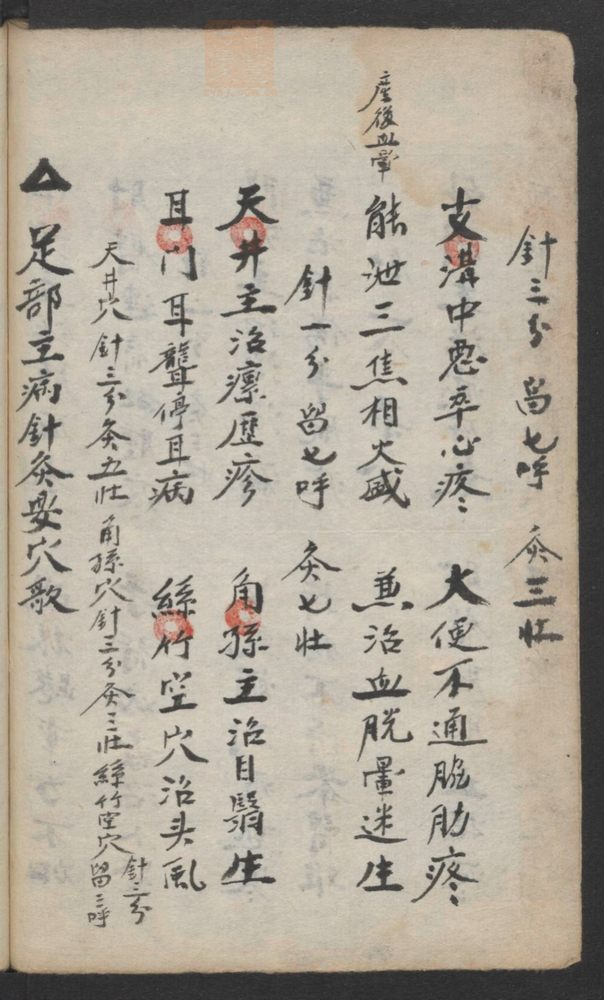 針三分 畄七呼 灸三壮
支溝中惡卒心疼 大便不通脇肋疼
產後血暈
能泄三焦相火盛 兼治血脱暈迷生
針一分 畄七呼 灸七壮
天井主治瘰歷疹 角孫主治目翳生
耳門耳聾停耳病 絲竹空穴治头風
天井穴 針三分灸五壮 角孫穴針三分灸三壮 絲竹空穴針三分留三呼
▲足部主病針灸要穴歌